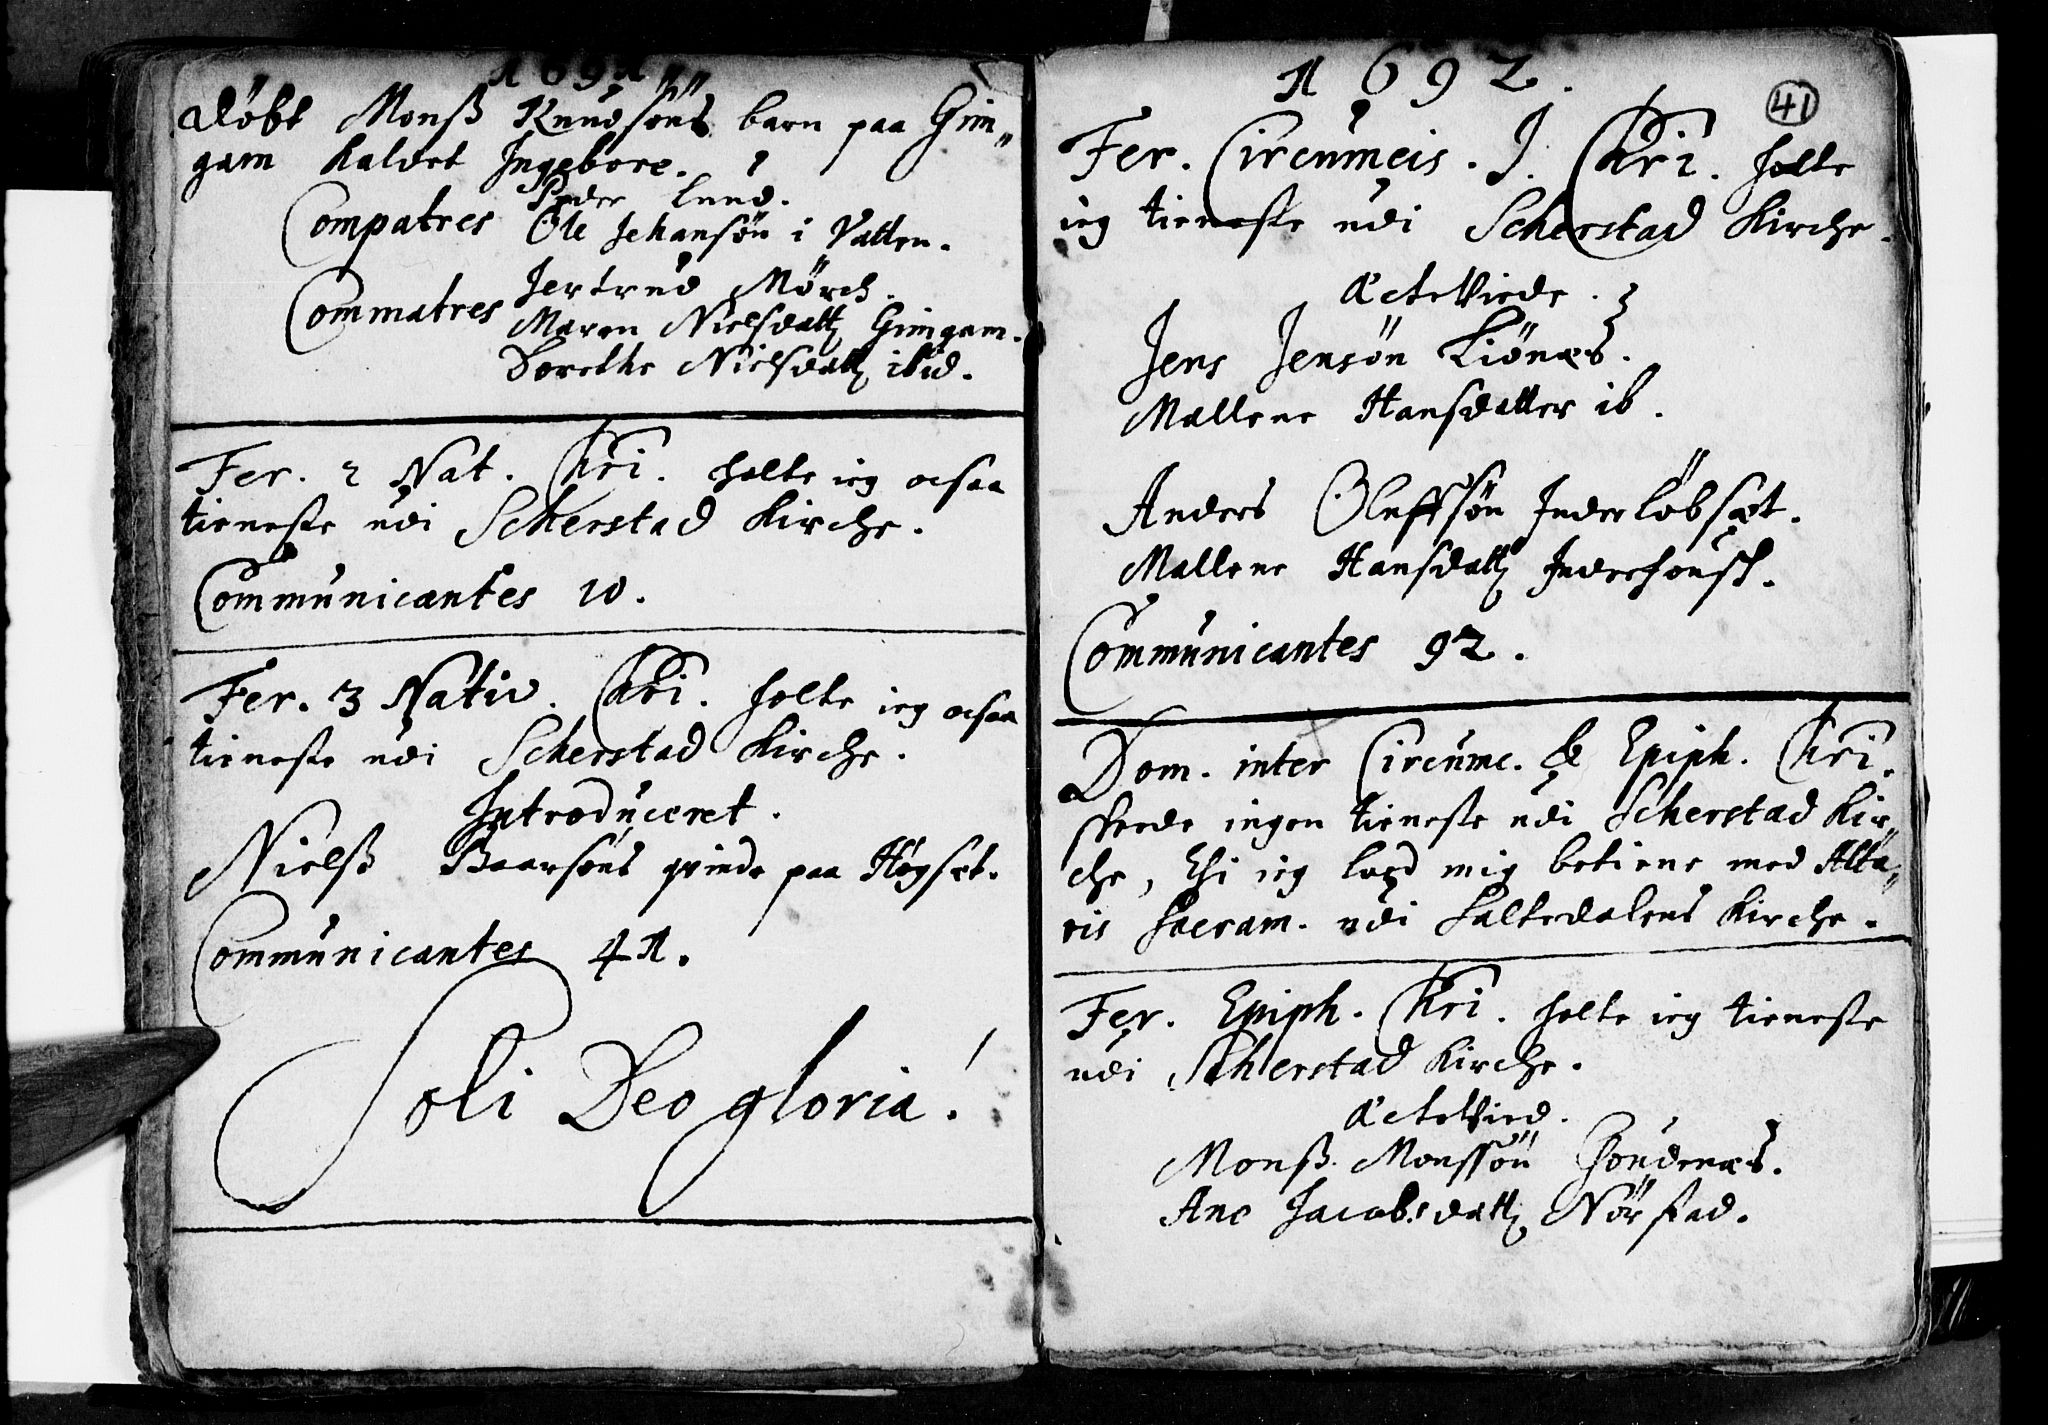 1691
Döbt Monß Knudsöns barn paa Gim„
gam kaldet Ingebore.
Compatres Peder Lund.
Ole Jehansön i Vatten.
Commatres Jertrud Mörch.
Maren Nielsdatt Gimgam.
Dorethe Nielsdatt ibid.
Fer. 2 Nat. Chri. holte ieg ocsaa
tieneste udi Scherstad Kirche.
Communicantes 10.
Fer. 3 Nativ. Chri. holte ieg ocsaa
tieneste udi Scherstad Kirche.
Introduceret.
Nielß Baarsöns qvinde paa Högset.
Communicantes 41.
Soli Deo gloria!
1692.
41
Fer. Circumcis. J. Chri. holte
ieg tieneste udi Scherstad Kirche.
 Æcteviede.
Jens Jensön Liönæs.
Mallene Hansdatter ib.
Anders Oluffsön Inderlöbsæt.
Mallene Hansdatt
Communicantes 92.
Dom. inter Circumc. & Epiph. Chri.
skeede ingen tieneste udi Scherstad Kir„
che, thi ieg loed mig betiene med Alta„
ris Sacram. udi Saltedalens Kirche.
Fer. Epiph. Chri. holte ieg tieneste
udi Scherstad Kirche.
Æctevied.
Monß Monssön
Ane Jacobsdatt Nörstad.